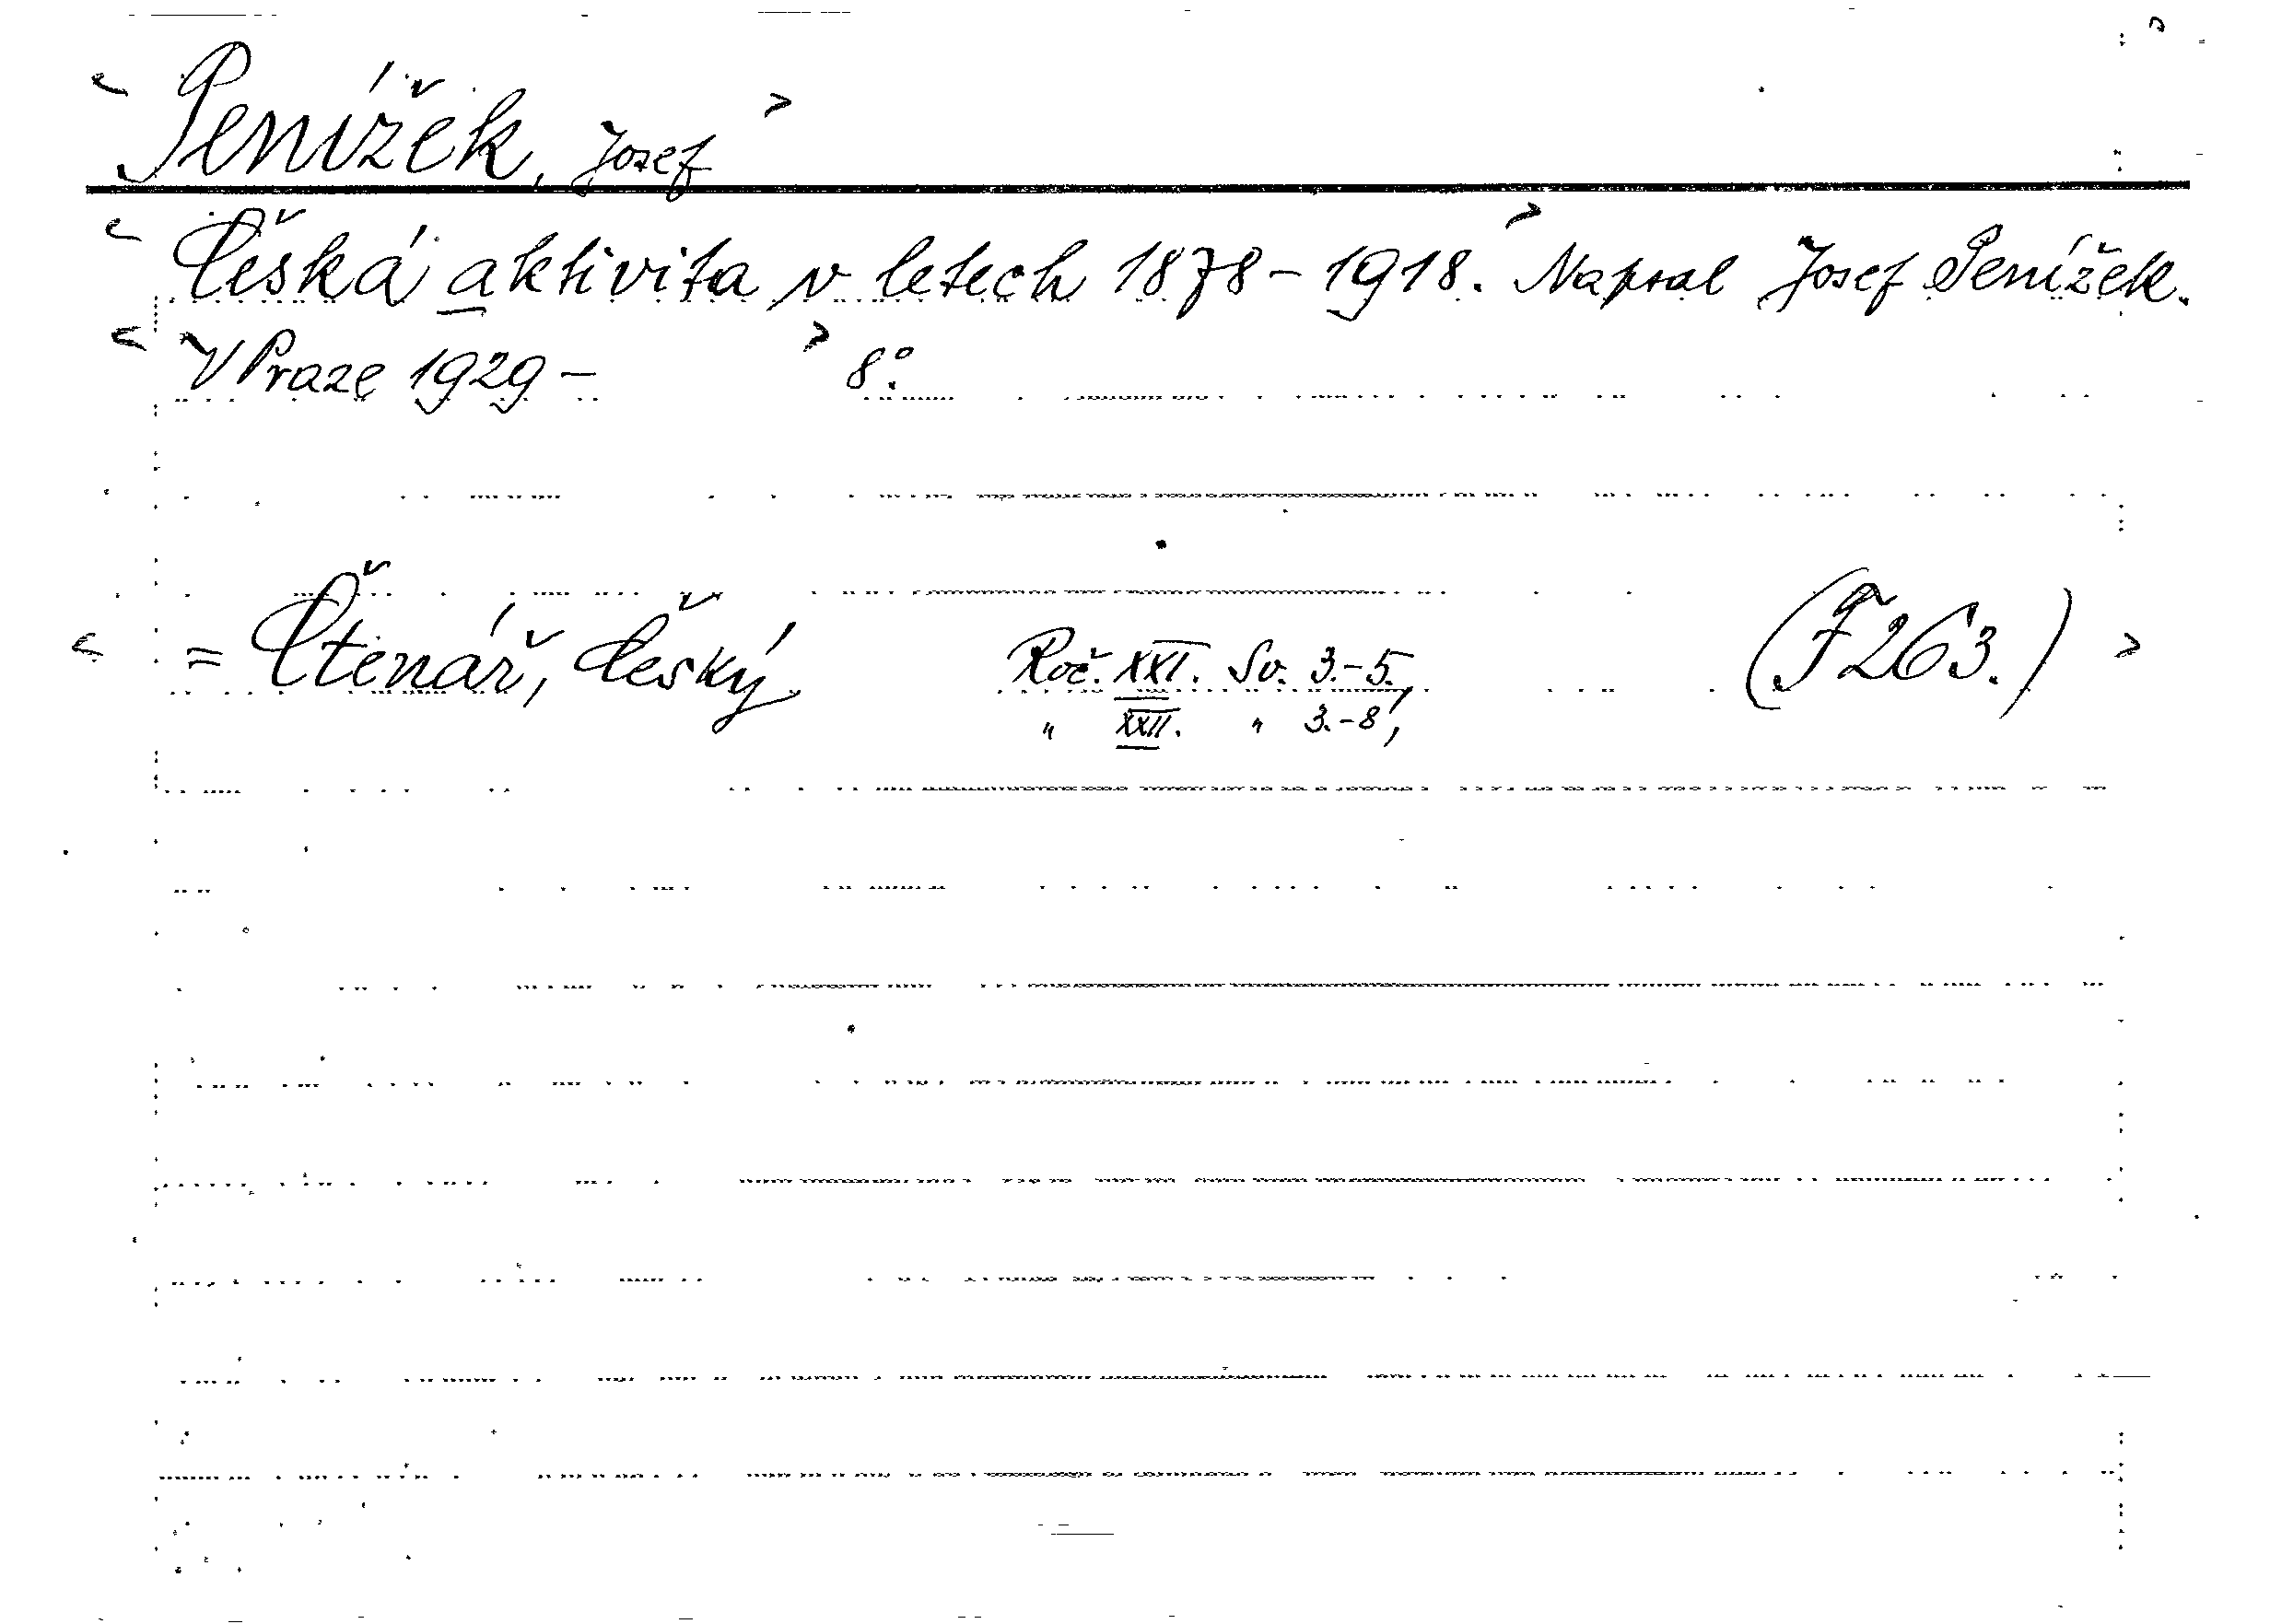 < Penížek, Josef >
< Česká aktivita v letech 1878-1918. > Napsal Josef Penížek.
< V Praze 1929- > 8°.
< = Čtenář, Český Roč. XXI. Sv. 3.-5., (F 263.) >
" XXII. " 3.-8,